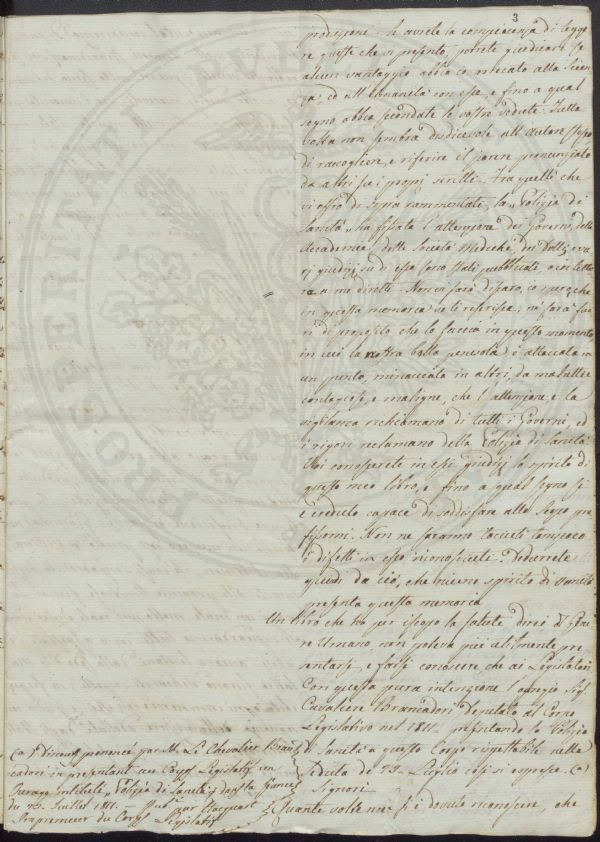 3
produzione. Se avrete la compiacenza di legge-
re queste che vi presento, potrete giudicare se
alcun vantaggio abbia io arrecato alla Scien-
za ed all'Umanità con esse, e fino a qual
segno abbia secondate le vostre vedute. Tutta-
volta non sembra disdicevole all'Autore stesso
di raccogliere, e riferire il parere pronunziato
da altri su i propri scritti. Tra quelli che
vi offro di sopra rammentati, la "Polizia di
Sanità" ha fissata l'attenzione dei Governi, delle
Accademie, delle Società Mediche, dei Dotti,
giudizj su di essa sono stati pubblicati, o in lette-
re a me diretti. Non vi sarà discaro, io spero, che
in questa memoria ve li riferisca, nè sarà fuo-
ri di proposito che lo faccia in questo momento,
in cui la nostra bella penisola è attaccata in
un punto, minacciata in altri, da malattie
contagiose, e maligne, che l'attenzione, e la
vigilanza richiamano di tutti i Governi, ed
i rigori reclamano della Polizia di Sanità.
Voi conoscerete in essi giudizj lo spirito di
questo mio libro, e fino a qual segno si
è creduto capace di soddisfare allo scopo pre-
fissomi. Non ne saranno taciuti tampoco
i difetti in esso riconosciuti. Dedurrete
quindi da ciò, che niuno spirito di vanità
presenta questa memoria.
Un libro che ha per iscopo la salute del Gene-
re Umano, non poteva più utilmente pre-
sentarsi, e farsi conoscere che ai Legislatori.
Con questa pura intenzione l'egregio Sig.r
Cavaliere Brancadori Deputato al Corpo
Legislativo nel 1811. presentando la Polizia
di Sanità a questo Corpo rispettabile nella
Seduta de' 23. Luglio così si espresse. (a)
Signori
Quante volte mi si è dovuto conoscere, che
(a) Discours prononcé par M. Le Chevalier Bran-
cadori en présentant au Corps Législatif un
Ouvrage intitulé "Polizia di Sanità"
du 23. Juillet 1811. — Pub. par Hacquart
Imprimeur du Corps Législatif